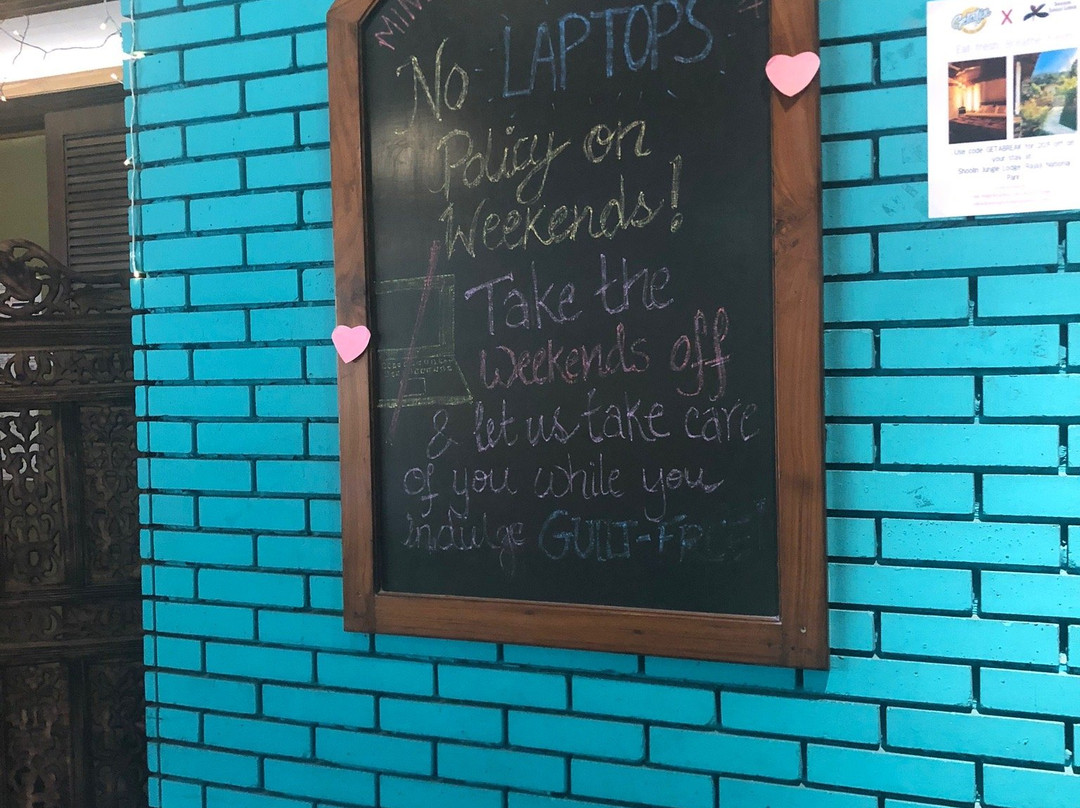 No LAPTOPS
Policy on
Weekends!
Take the
Weekends off
& let us take care
of you while you
indulge GUILT-FREE
X
Use code GETABREAK for 20% off on
your stay at
Shoolin Jungle Lodge, Rajaji National
Park